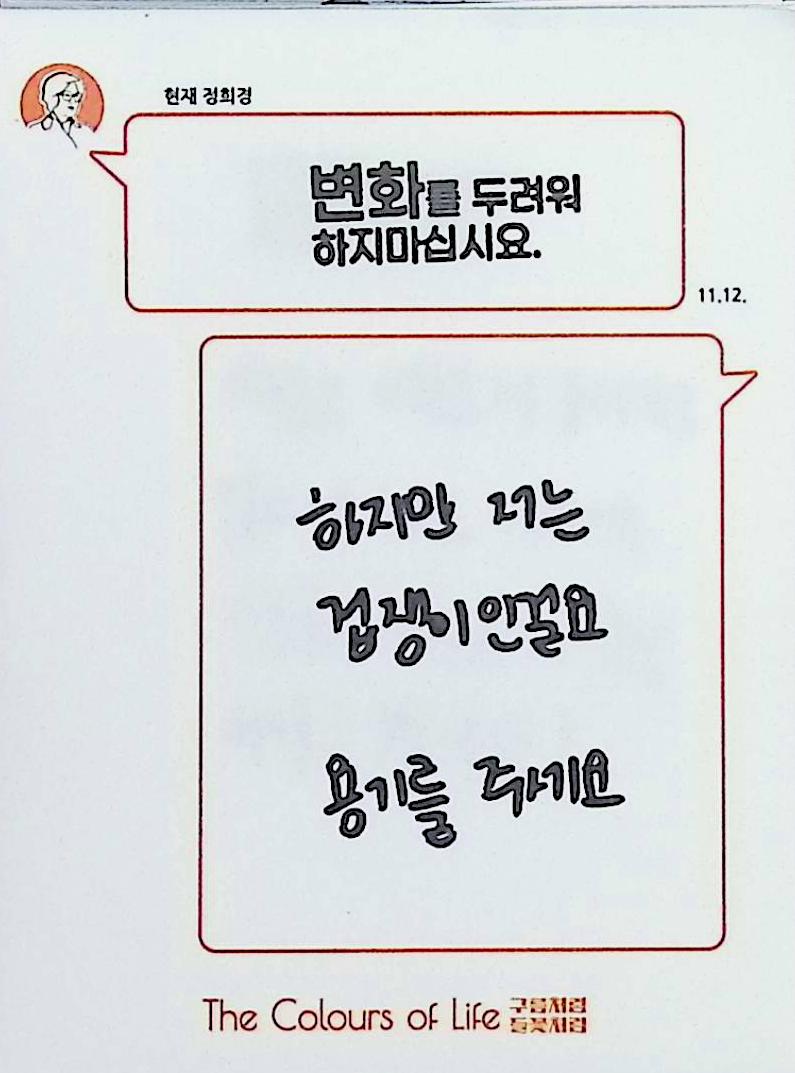 현재 정희경
변화를 두려워
하지마십시요.
11.12.
하지만 저는
겁쟁이인걸요
용기를 주세요
The Colours of Life 구름처럼
들꽃처럼